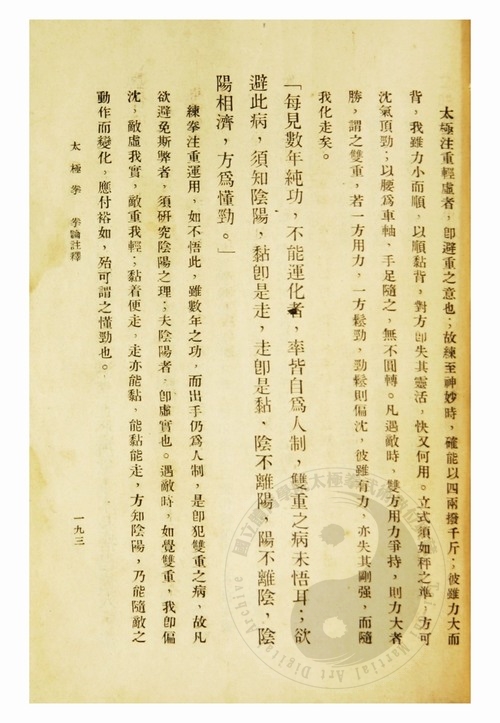 太極注重輕虛者，卽避重之意也；故練至神妙時，確能以四兩撥千斤；彼雖力大而
背，我雖力小而順，以順黏背，對方卽失其靈活，快又何用。立式須如秤之準，方可
沈氣頂勁；以腰為車軸、手足隨之，無不圓轉。凡遇敵時，雙方用力爭持，則力大者
勝，謂之雙重，若一方用力，一方鬆勁，勁鬆則偏沈，彼雖有力，亦失其剛强，而隨
我化走矣。
「每見數年純功，不能運化者，率皆自爲人制，雙重之病未悟耳；欲
避此病，須知陰陽，黏卽是走，走卽是黏、陰不離陽，陽不離陰，陰
陽相濟，方爲懂勁。」
練拳注重運用，如不悟此，雖數年之功，而出手仍爲人制，是卽犯雙重之病，故凡
欲避免斯弊者，須研究陰陽之理；夫陰陽者，卽虛實也。遇敵時，如覺雙重，我卽偏
沈，敵虛我實，敵重我輕；黏着便走，走亦能黏，能黏能走，方知陰陽，乃能隨敵之
動作而變化，應付裕如，殆可謂之懂勁也。
太極拳　拳論註釋
一九三
國立臺灣
太極拳武術數位
Martial Art Digital Archive